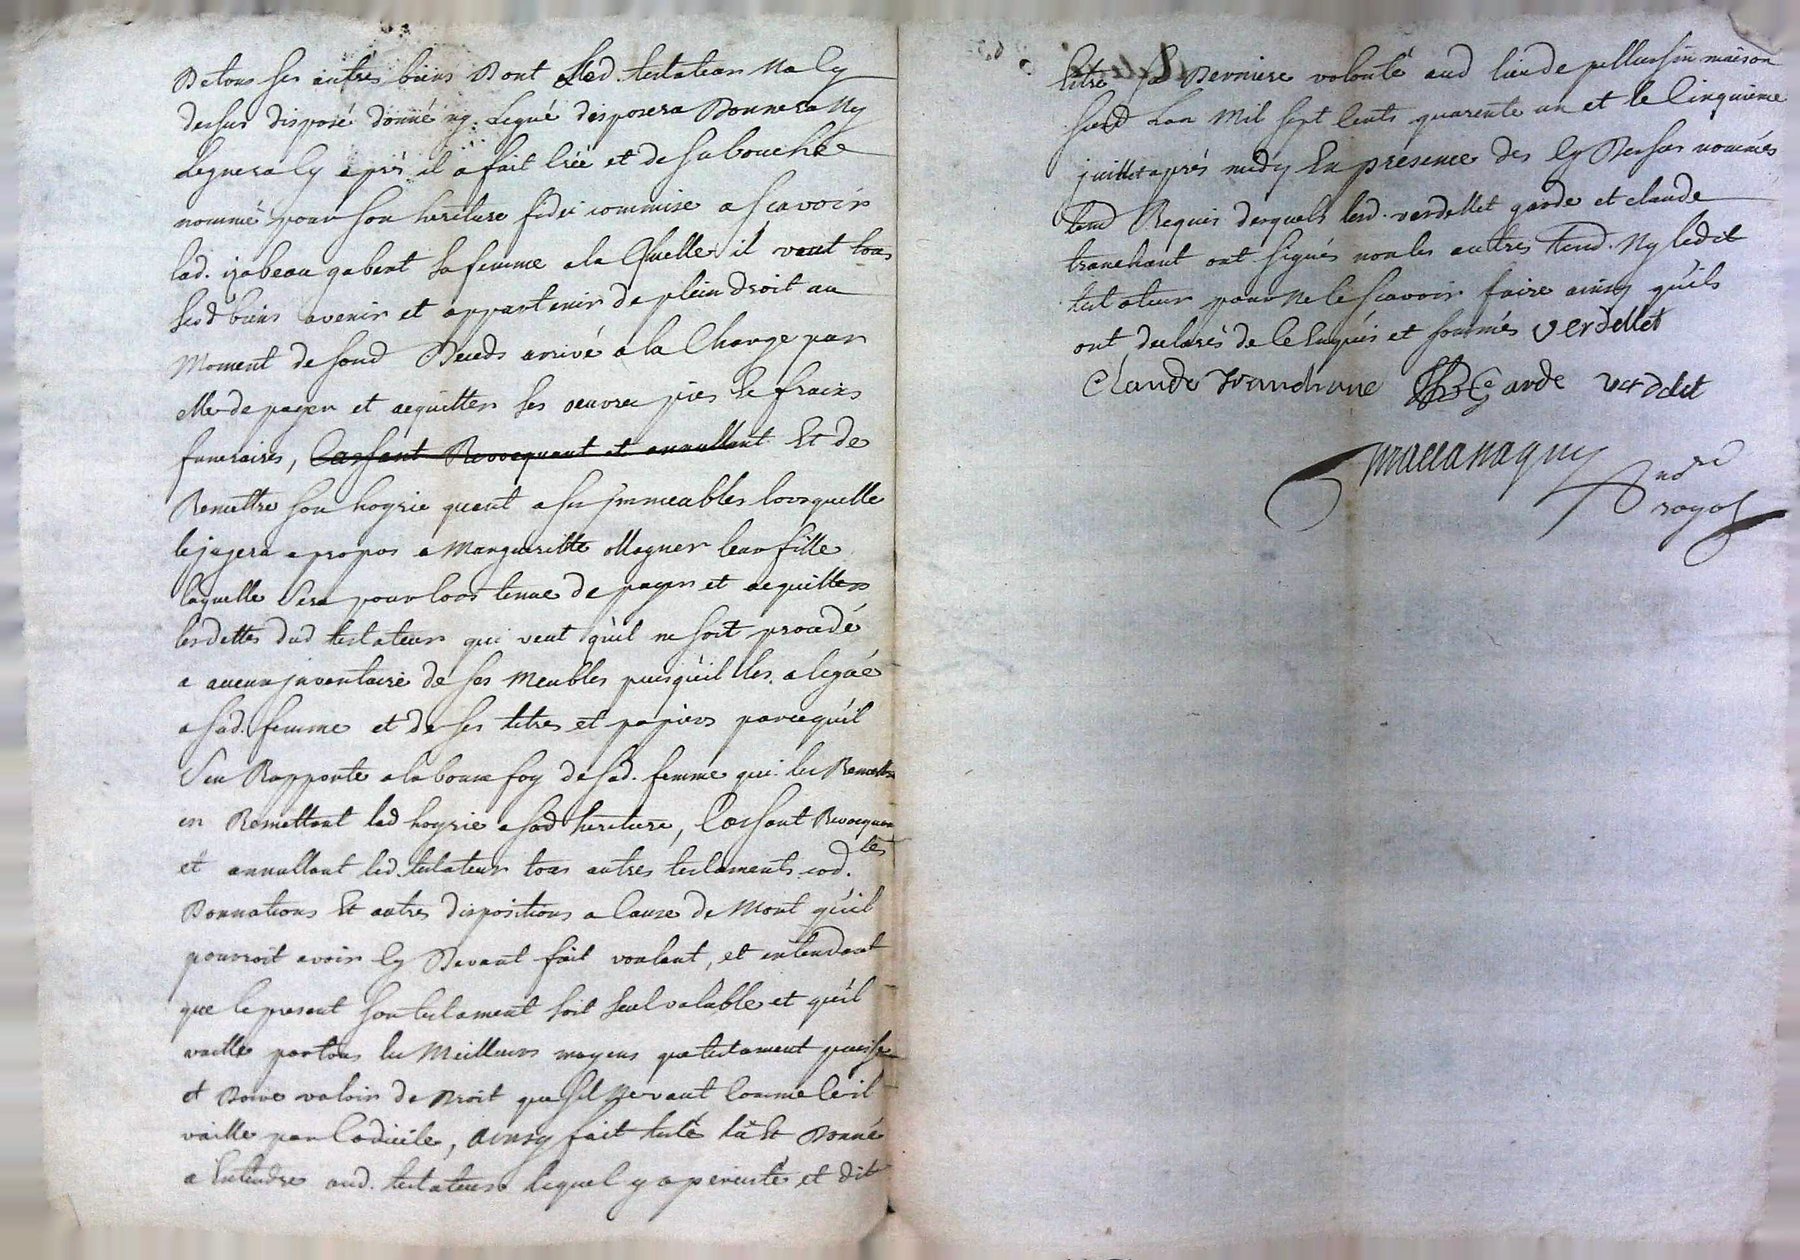 De tous ses autres biens Dont led. testateur Na Cy
dessus disposé donné ny Legué disposera Donnera Ny
Leguera Cy après il a fait Créé et de sa bouche
nommé pour son heritiere fidei commise a scavoir
lad. izabeau gabert sa femme a la Quelle il veut tous
sesd biens avenir et appartenir de plein droit au
Moment de sond Deceds arrivé a la Charge par
elle de payer et acquitter ses oeuvres pies Se fraix
funeraires, Cassant Revocquant et annullant Et de
Remettre son hoyrie quant a ses jmmeubles lorsquelle
le jugera a propos a Margueritte ollagner leur fille
laquelle Sera pour lors tenue de payer et acquitter
les dettes dud testateur qui veut quil ne soit procedé
a aucun jnventaire de ses Meubles puisquil les a legué
a sad. femme et de ses titres et papiers parcequil
Sen Rapporte a la bonne foy de sad. femme qui les Remettra
en Remettant lad hoyrie a sad heritiere, Cassant Revocquant
et annullant led. testateur tous autres testaments cod.les
Donnations Et autres dispositions a Cause de Mort quil
pourroit avoir Cy Devant fait voulant, et entendant
que le present son testament soit seul valable et quil
vaille par tous les Meilleurs moyens que testament puisse
et Doive valoir de Droit que sil Ne vaut Comme tel il
vaille par Codicile, ainsy fait testé lu Et Donné
a Entendre aud. testateur lequel y a percisté et dit
être sa Derniere volonté aud lieu de pellussin maison
sieud Lan Mil sept Cents quarente un et le Cinquieme
juillet après midy En presence des Cy Dessus nommés
temd Requis desquels lesd. verdellet garde et claude
tranchant ont signés non les autres temd. Ny ledit
testateur pour Ne le scavoir faire ainsy quils
ont declarés de Ce Enquis et sommés verdellet
Claude tranchane Garde verdelet
nord
royal